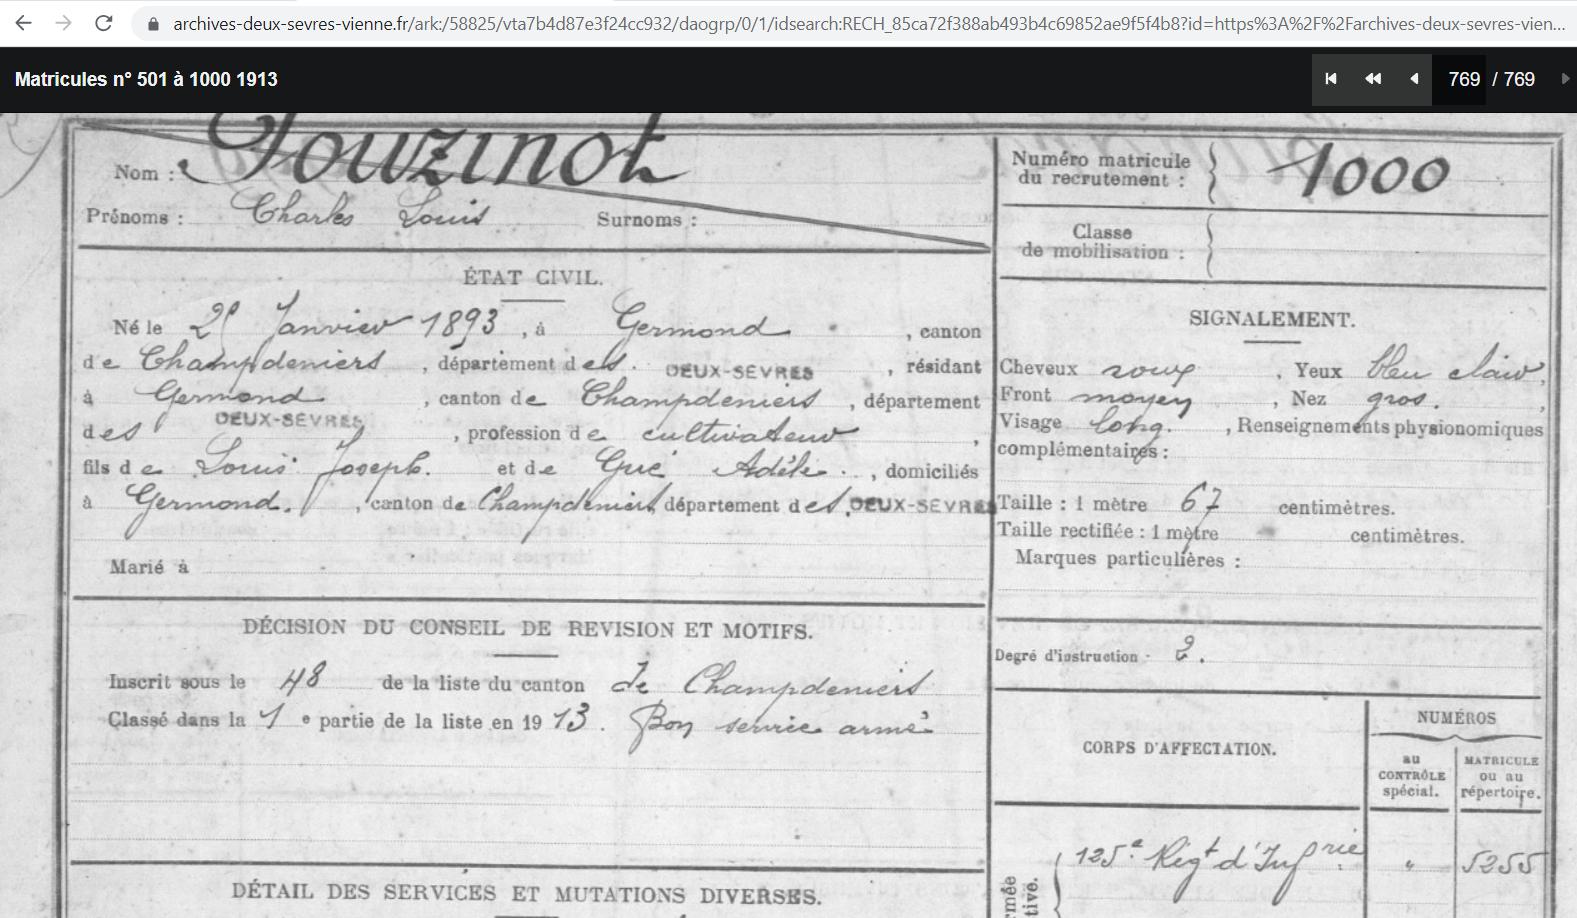 archives-deux-sevres-vienne.fr/ark:/58825/vta7b4d87e3f24cc932/daogrp/0/1/idsearch:RECH_85ca72f388ab493b4c69852ae9f5f4b8?id=https%3A%2F%2Farchives-deux-sevres-vien...
Matricules n° 501 à 1000 1913
769 / 769
Nom : Pouzinot
Prénoms : Charles Louis Surnoms :
ÉTAT CIVIL.
Né le Janvier 1893, à Germond, canton
de Champdeniers, département des DEUX-SEVRES, résidant
à Germond, canton de Champdeniers, département
des DEUX-SEVRES, profession de cultivateur,
fils de Louis Joseph. et de Gué Adèle., domiciliés
à Germond., canton de Champdeniers, département des DEUX-SEVRES
Marié à
DÉCISION DU CONSEIL DE REVISION ET MOTIFS.
Inscrit sous le 48 de la liste du canton de Champdeniers
Classé dans la 1e partie de la liste en 1913. Bon service armé
DÉTAIL DES SERVICES ET MUTATIONS DIVERSES.
Numéro matricule
du recrutement : 1000
Classe
de mobilisation :
SIGNALEMENT.
Cheveux roux, Yeux bleu clair,
Front moyen, Nez gros.,
Visage long., Renseignements physionomiques
complémentaires :
Taille : 1 mètre 67 centimètres.
Taille rectifiée : 1 mètre centimètres.
Marques particulières :
Degré d'instruction - 2.
CORPS D'AFFECTATION.
NUMÉROS
au
CONTRÔLE
spécial.
MATRICULE
ou au
répertoire.
125e Regt d'Infrie " 5255